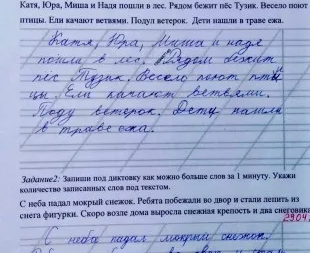 Катя, Юра, Миша и Надя пошли в лес. Рядом бежит пёс Тузик. Весело поют
птицы. Ели качают ветвями. Подул ветерок. Дети нашли в траве ежа.
Катя, Юра, Миша и надя
пошли в лес. Рядом бежит
пёс Тузик. Весело поют пти
цы Ели качают ветвями.
Поду ветерок. Дету нашли
в траве ежа.
Задание2: Запиши под диктовку как можно больше слов за 1 минуту. Укажи
количество записанных слов под текстом.
С неба падал мокрый снежок. Ребята побежали во двор и стали лепить из
снега фигурки. Скоро возле дома выросла снежная крепость и два снеговика
29.04
С неба падал мокрый снежок.